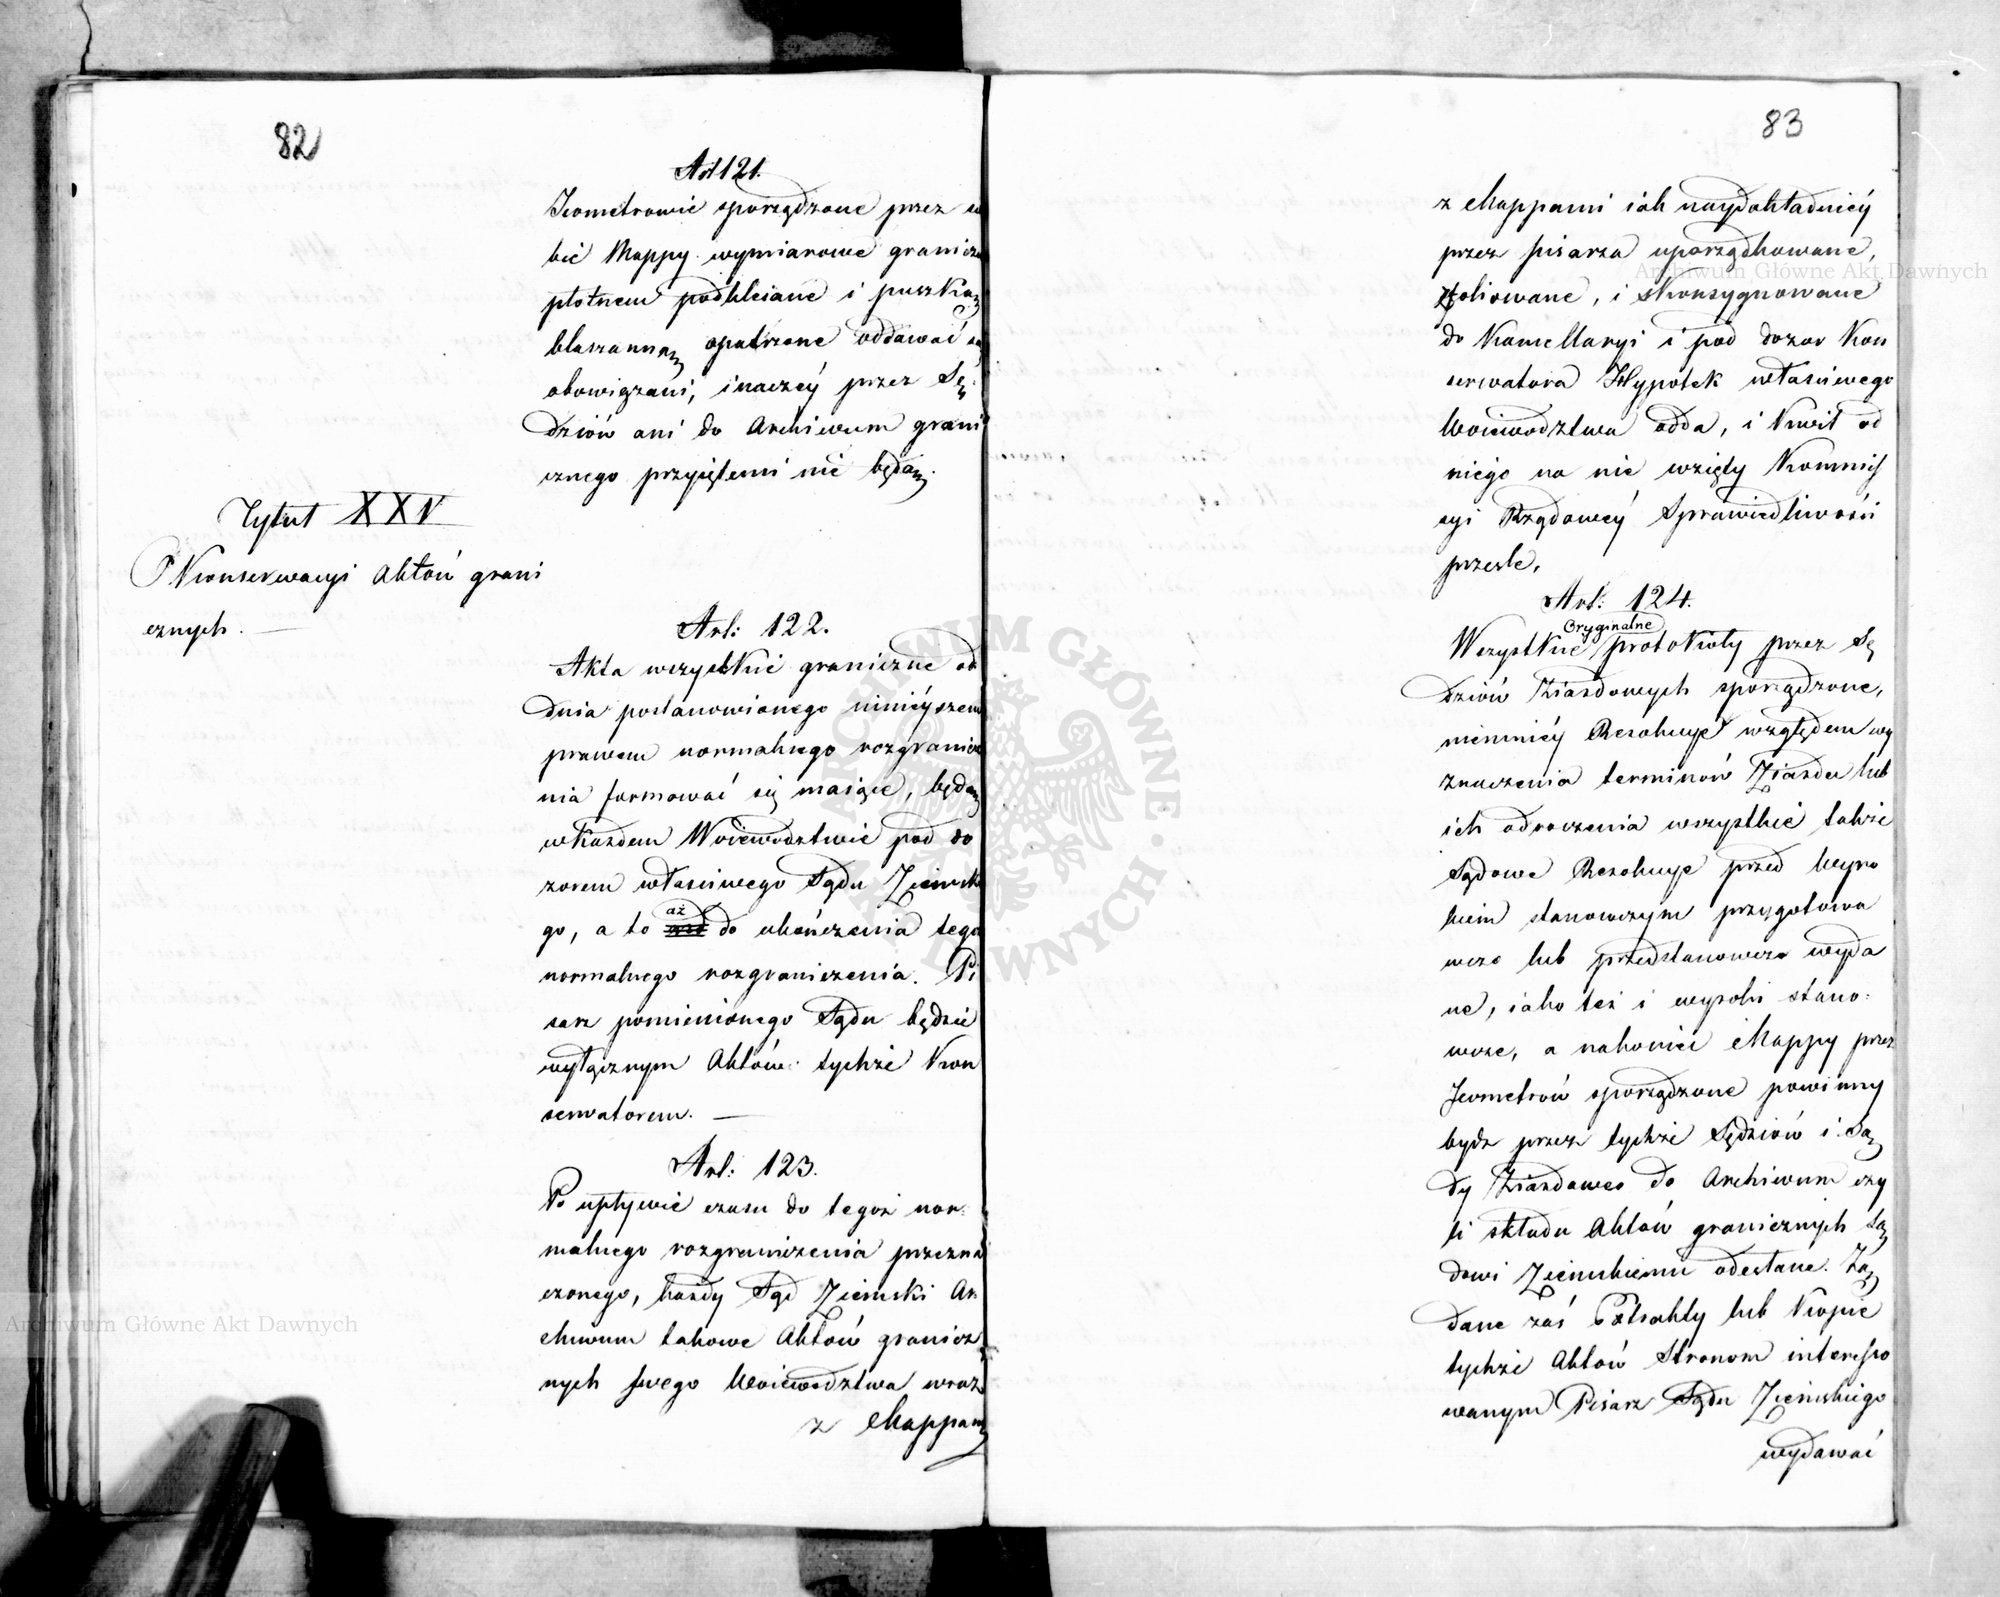 82
Art 121.
Jeometrowie sporządzone przez sie
bie Mappy wymiarowe granicz
płotnem podkleiane i puszką
blaszanną opatrzone oddawać są
obowiązani, inaczéy przez Sę
dziów ani do Archiwum grani
cznego przyiętemi nie będą.
Tytuł XXV
O Konserwacyi Aktów grani
cznych.
Art: 122.
Akta wszystkie graniczne od
dnia postanowionego ninieyszem
prawem normalnego rozgranicze
nia formować się maiące, będą
w każdem Woiewodztwie pod do
zorem właściwego Sądu Ziemsk
go, a to aż do ukończenia tego
normalnego rozgraniczenia. Pi
sarz pomienionego Sądu będzie
wyłącznym Aktów tychże Kon
serwatorem.
Art: 123.
Po upływie czasu do tegoż nor:
malnego rozgraniczenia przezna
czonego, każdy Sąd Ziemski Ar
chiwum takowe Aktów granicz
nych swego Woiewodztwa wraz
z Mappam
83
z Mappami iak naydokładniéy
przez pisarza uporządkowane,
foliowane, i skonsygnowane
do Kancellaryi i pod dozor Kon
serwatora Hypotek właściwego
Woiewodztwa odda, i Kwit od
niego na nie wzięty Kommis
syi Rządowéy Sprawiedliwości
prześle,
Art: 124.
Oryginalne
Wszystkie protokioły przez Sę
dziów Ziazdowych sporządzone,
niemniéy Rezolucye względem wy
znaczenia terminów Ziazdu lub
ich odroczenia wszystkie także
Sądowe Rezolucye przed Wyro
kiem stanowczym przygotowa
wcze lub przedstanowcze wyda
ne, iako też i wyroki stano:
wcze, a nakoniec Mappy przez
Jeometrów sporządzone powinny
bydz przez tychże Sędziów i Są
dy Ziazdowe do Archiwum czy
li składu Aktów granicznych Są
dowi Ziemskiemu odesłane. Żą
dane zaś Extrakty lub Kopie
tychże Aktów Stronom interesso
wanym Pisarz Sądu Ziemskiego
wydawać
Archiwum Główne Akt Dawnych
Archiwum Główne Akt Dawnych
ARCHIWUM GŁÓWNE AKT DAWNYCH